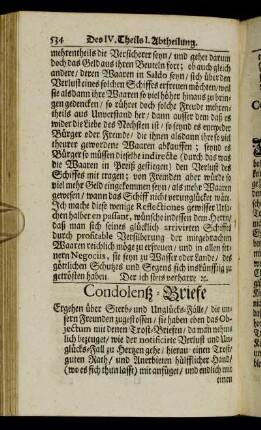 534 Des IV. Theils I. Abtheilung.
mehrentheils die Versicherer seyn / und gehet darum
doch das Geld aus ihren Beuteln fort; ob auch gleich
andere / deren Waaren in Saldo seyn / sich über den
Verlust eines solchen Schiffes erfreuen möchten / weil
sie alsdann ihre Waaren so viel höher hinaus zu brin-
gen gedencken / so rühret doch solche Freude mehren-
theils aus Unverstand her / dann ausser dem daß es
wider die Liebe des Nechsten ist / so seynd es entweder
Bürger oder Freunde / die ihnen alsdann ihre so viel
theurer gewordene Waaren abkauffen; seynd es
Bürger so müssen dieselbe indirecte (durch das was
die Waaren in Preiß gestiegen) den Verlust des
Schiffes mit tragen; von Freunden aber würde so
viel mehr Geld eingekommen seyn / als mehr Waaren
gewesen / wann das Schiff nicht verunglücket wäre.
Ich mache diese wenige Reflectiones gewisser Ursa-
chen halber en passant, wünsche indessen dem Herrn /
daß man sich seines glücklich arrivirten Schiffes
durch profitable Versilberung der mitgebrachten
Waaren reichlich möge zu erfreuen / und in allen sei-
nern Negociis, sie seyn zu Wasser oder Lande / des
göttlichen Schutzes und Segens sich inskünfftig zu
getrösten haben. Der ich stets verharre ꝛc.
Condolentz-Briefe
Ergehen über Sterb- und Unglücks-Fälle / die un-
sern Freunden zugestossen / sie haben eben das Ob-
jectum mit denen Trost-Briefen / da man nehm-
lich bezeuget / wie der notificirte Verlust und Un-
glücks-Fall zu Hertzen gehe / hieran einen Trost /
guten Rath / und Anerbieten hülfflicher Hand /
(wo es sich thun lässt) mit anfüget / und endlich mit
einem